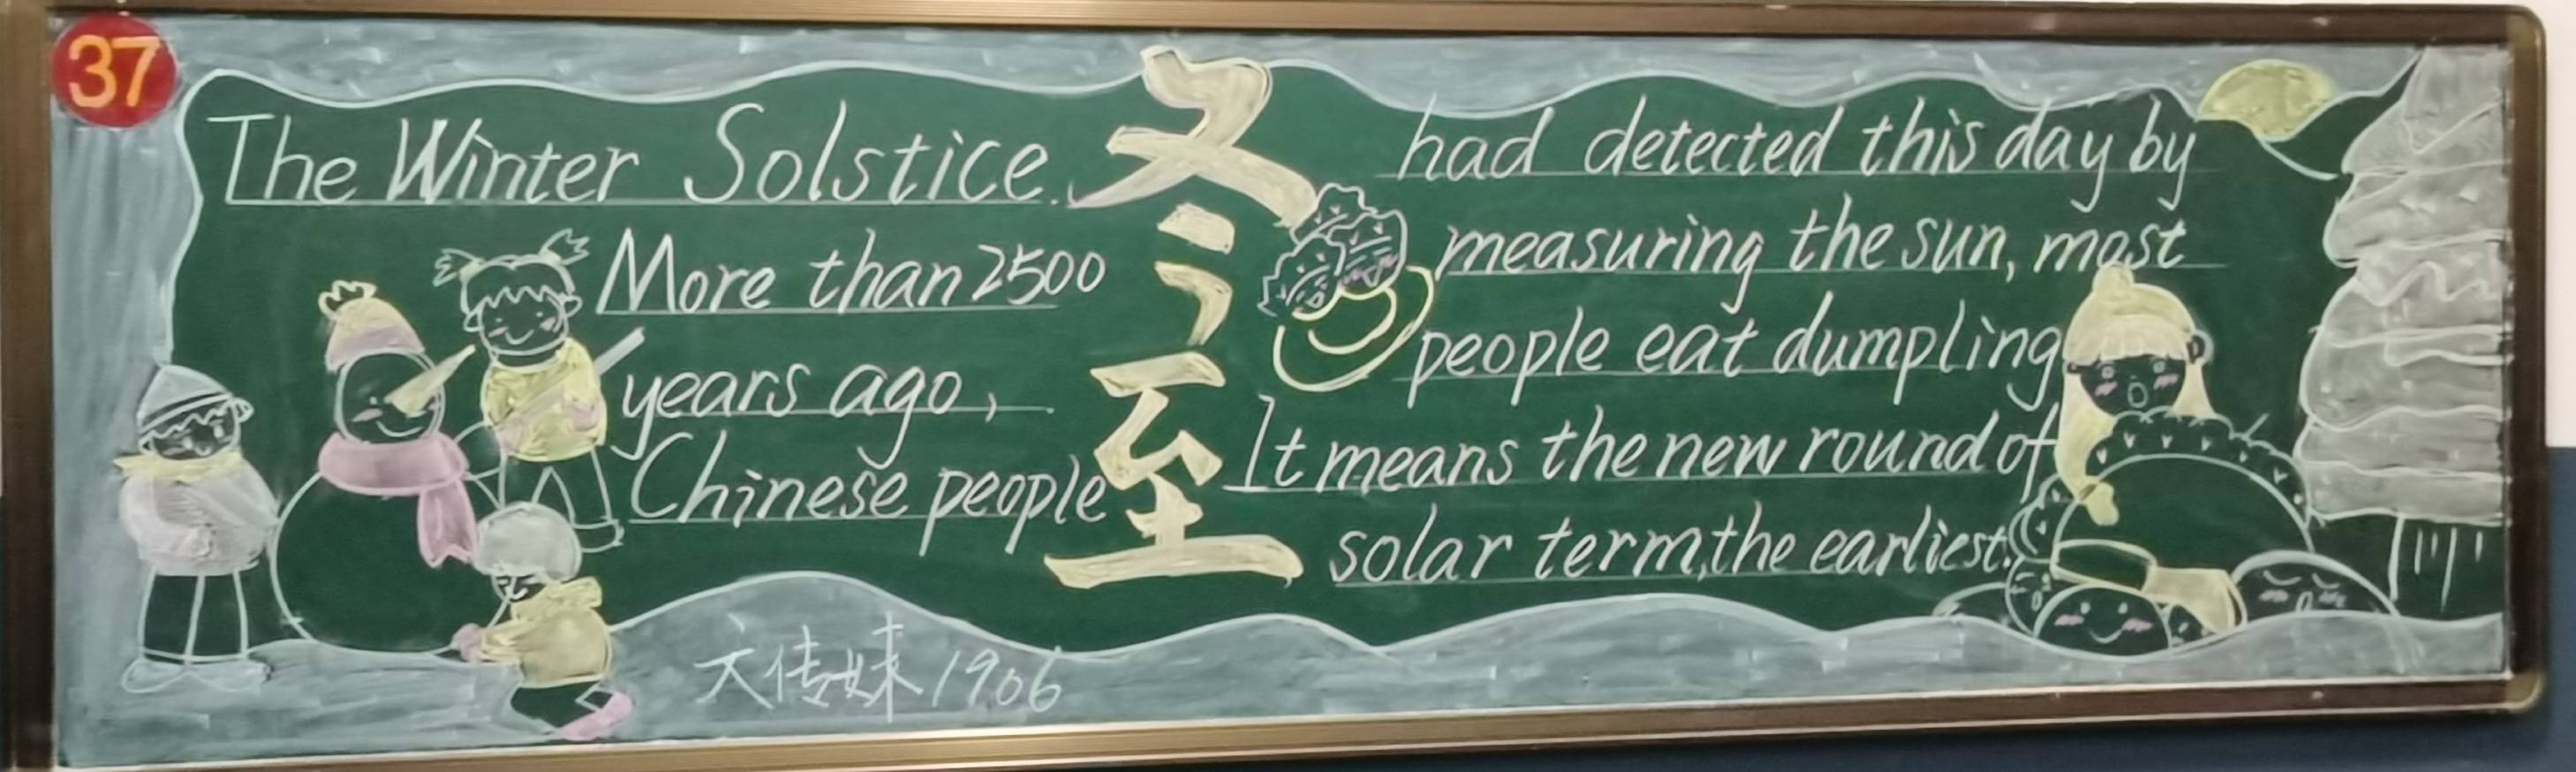 37
The Winter Solstice.
More than 2500
years ago,
Chinese people
冬至
had detected this day by
measuring the sun, most
people eat dumpling
It means the new round of
solar term, the earliest.
六传妹 1906